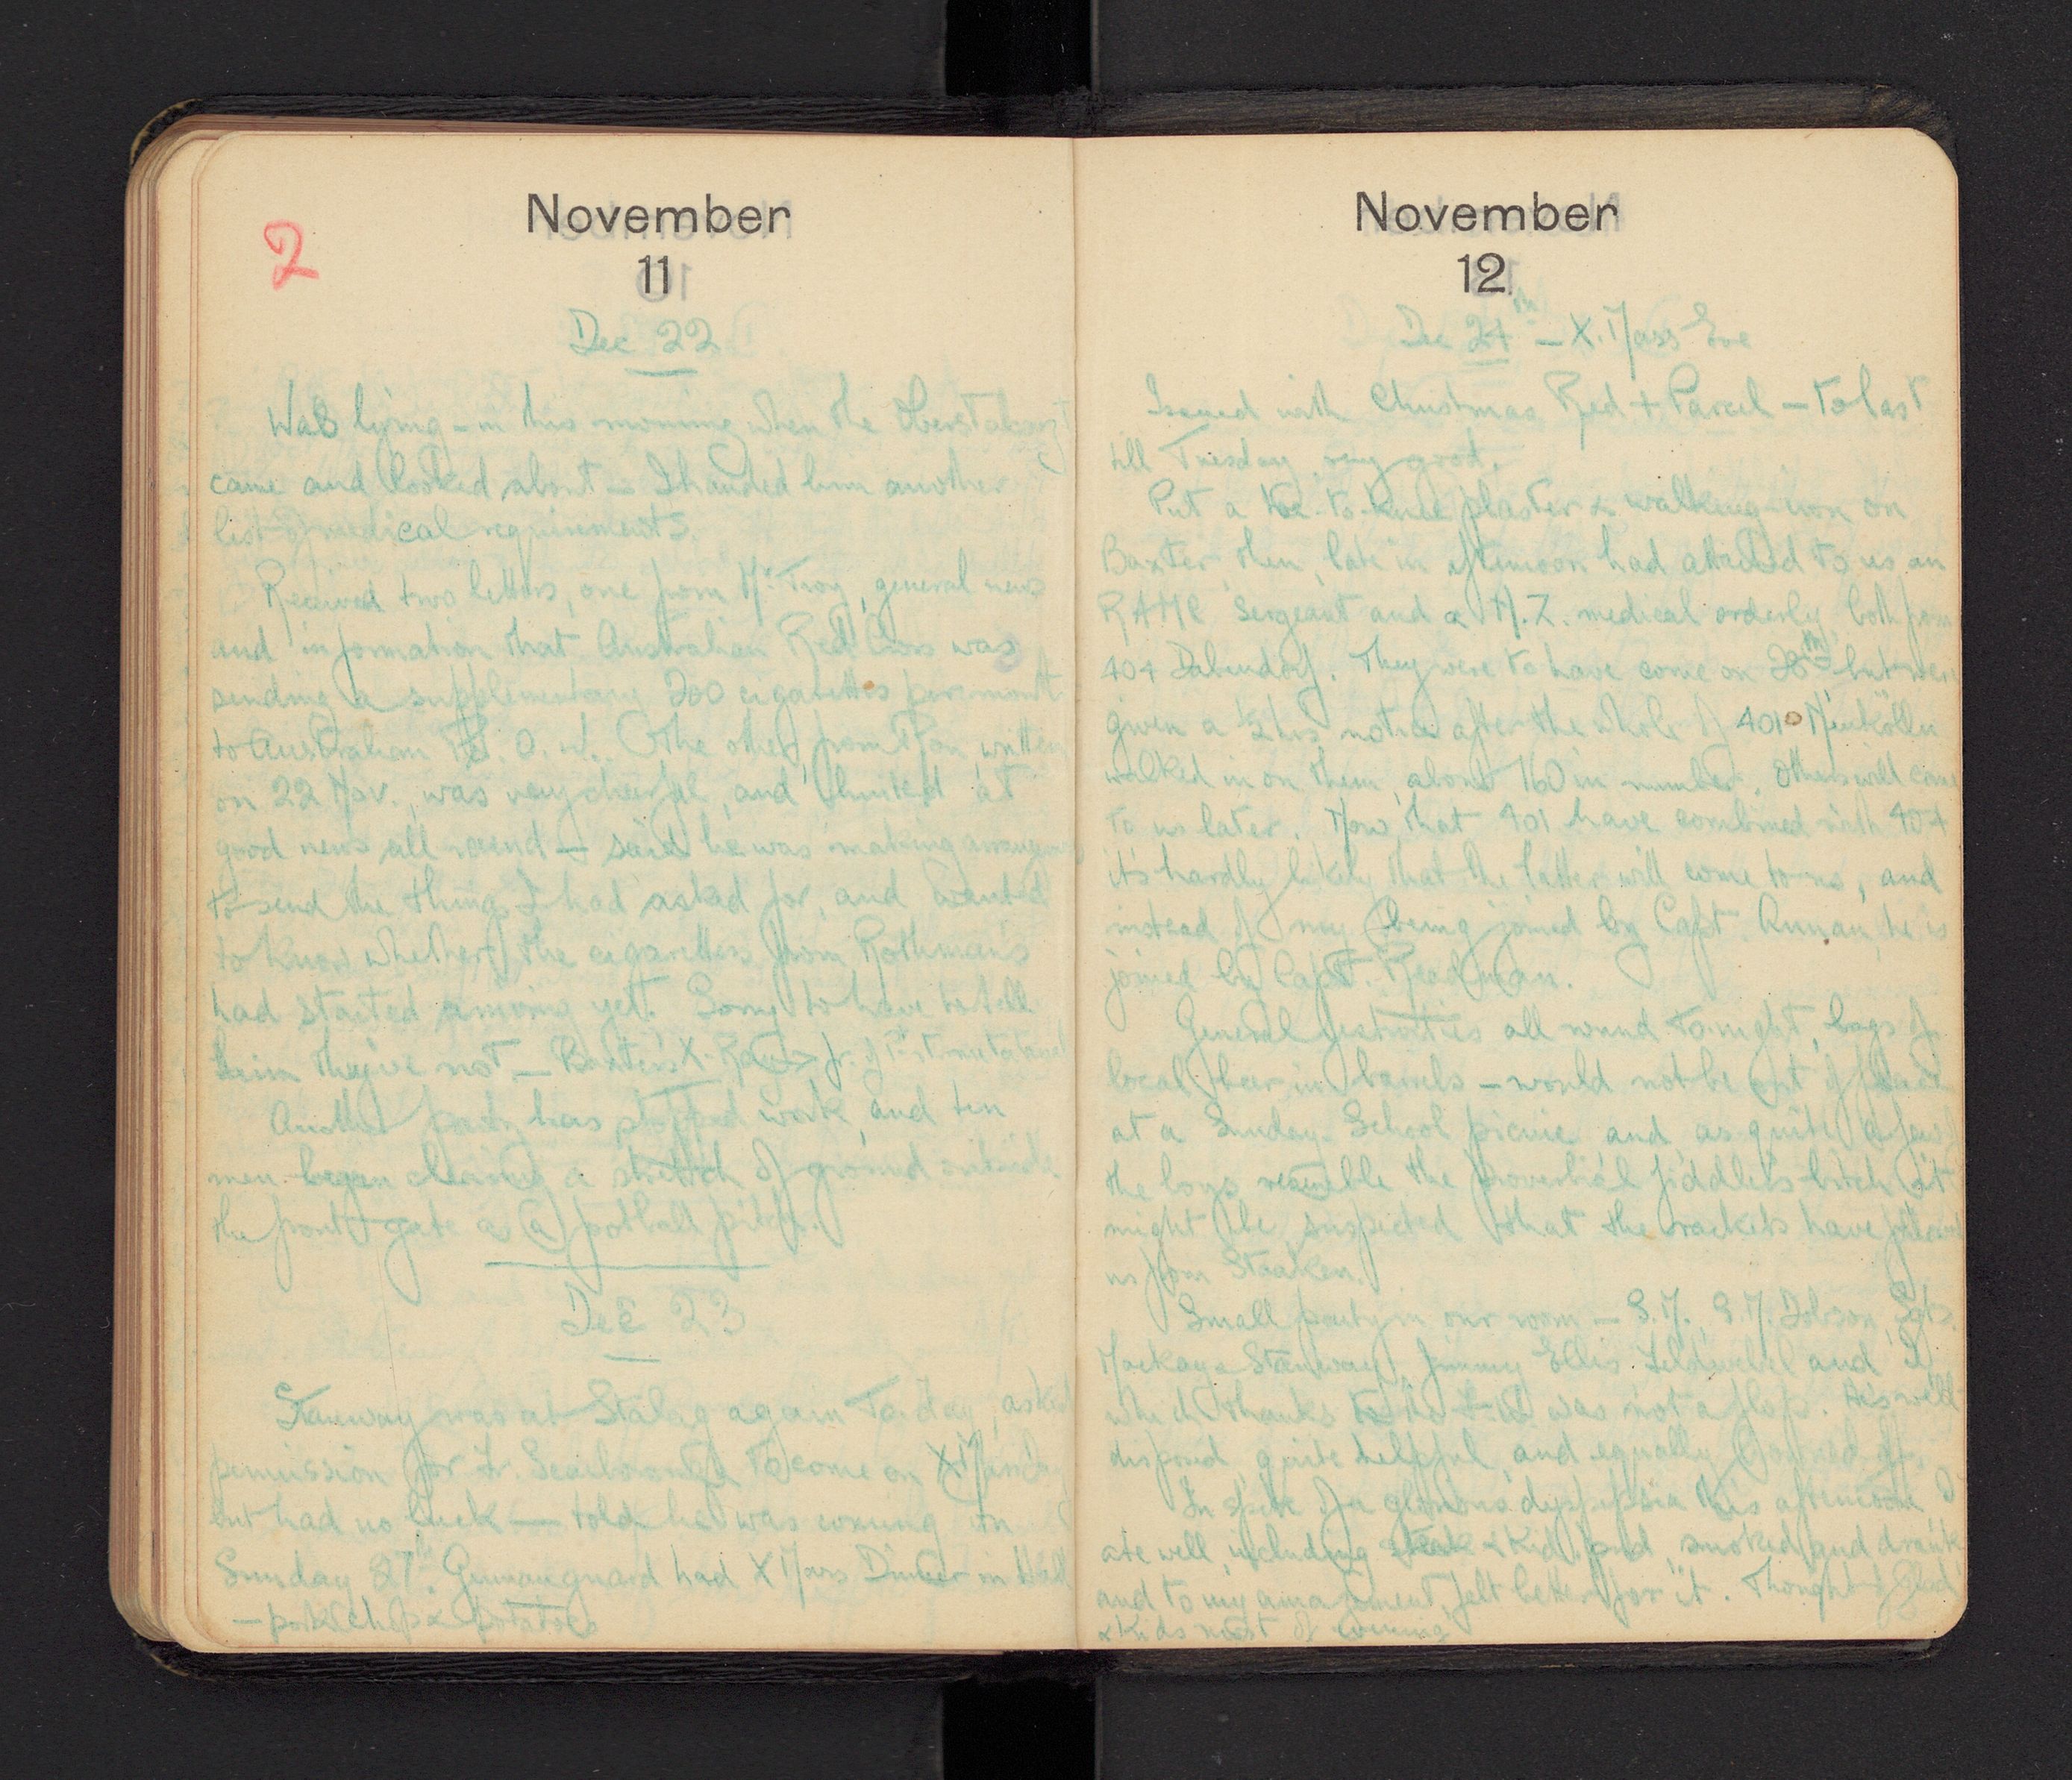 2
November
11
Dec 22
Was lying-in this morning when the Oberstabarzt
came and looked about – I handed him another
list of medical requirements.
Received two letters, one from Mc Troy, general news
and information that Australian Red Cross was
sending a supplementary 200 cigarettes per month
to Australian P.O.W. The other, from Ron, written
on 22 Nov., was very cheerful, and hinted at
good news all round – said he was making
to send the things I had asked for, and wanted
to know whether the cigarettes from Rothman's
had started arriving yet. Sorry to have to tell
him they've not – Baxter's X-Ray fr. of 1st metatarsal
Another party has stopped work, and ten
men began clearing a stretch of ground outside
the front gate as a football pitch.
Dec 23
Stanway was at Stalag again To-day, asked
permission for Fr. Scarborough to come on
but had no luck – told he was coming on
Sunday 27th. German guard had X Mass Dinner in Hall
– pork chop & potatoes
November
12
Dec 24th – X. Mass Eve
Issued with Christmas Red + Parcel – to last
till Tuesday, very good.
Put a toe-to-knee plaster & walking-iron on
Baxter, then, late in afternoon had attached to us an
RAMC Sergeant and a N.Z. medical orderly, both from
404 Dabendorf. They were to have come on 28th but were
given a ½ hrs notice after the whole of 401 Neukölln
walked in on them, about 160 in number. Others will come
to us later. Now that 401 have combined with 404
it's hardly likely that the latter will come to us, and
instead of my being joined by Capt. Annan, he is
joined by Capt. Readman.
General festivities all round tonight, bags of
local beer in barrels – would not be out of place
at a Sunday-School picnic, and, as quite a few of
the boys resemble the proverbial fiddler's-bitch it
might be suspected that the rackets have followed
us from Staaken.
Small party in our room – S.M., S.M. Dobson, Sgts.
Mackay & Stanway, Jimmy Ellis, Feldwebel and I
which thanks to the was not a flop. He's well
disposed, quite helpful, and equally browned off.
In spite of a glorious dyspepsia this afternoon, I
ate well, including steak & kid. pud, smoked and drank
and to my amazement, felt better for it. Thought of Glad
& kids most of evening